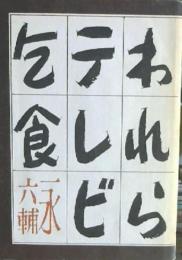 われら
テレビ
乞食
永六輔